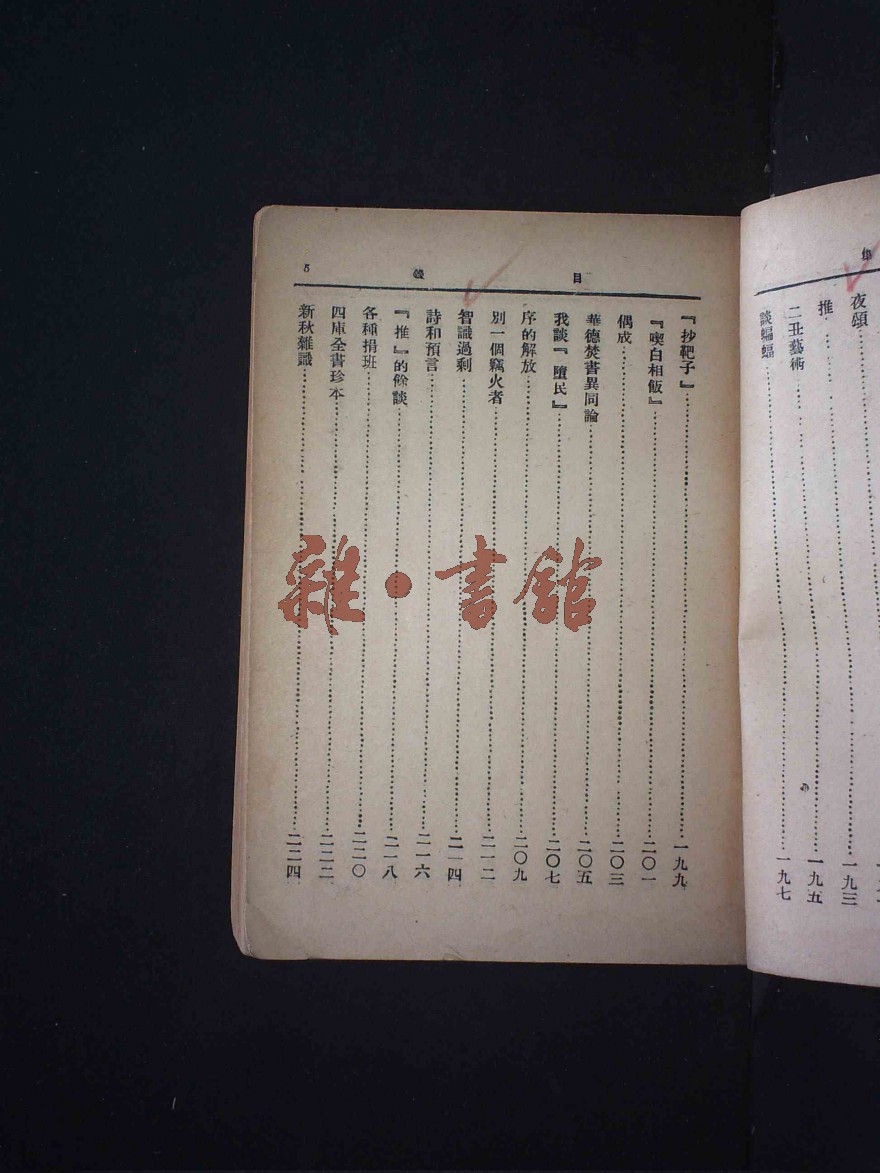 集
夜頌……一九三
推……一九五
二丑藝術……一九六
談蝙蝠……一九七
目 錄 5
『抄靶子』……一九九
『喫白相飯』……二〇一
偶成……二〇三
華德焚書異同論……二〇五
我談『墮民』……二〇七
序的解放……二〇九
別一個竊火者……二一二
智識過剩……二一四
詩和預言……二一六
『推』的餘談……二一八
各種捐班……二二〇
四庫全書珍本……二二二
新秋雜識……二二四
雜·書館